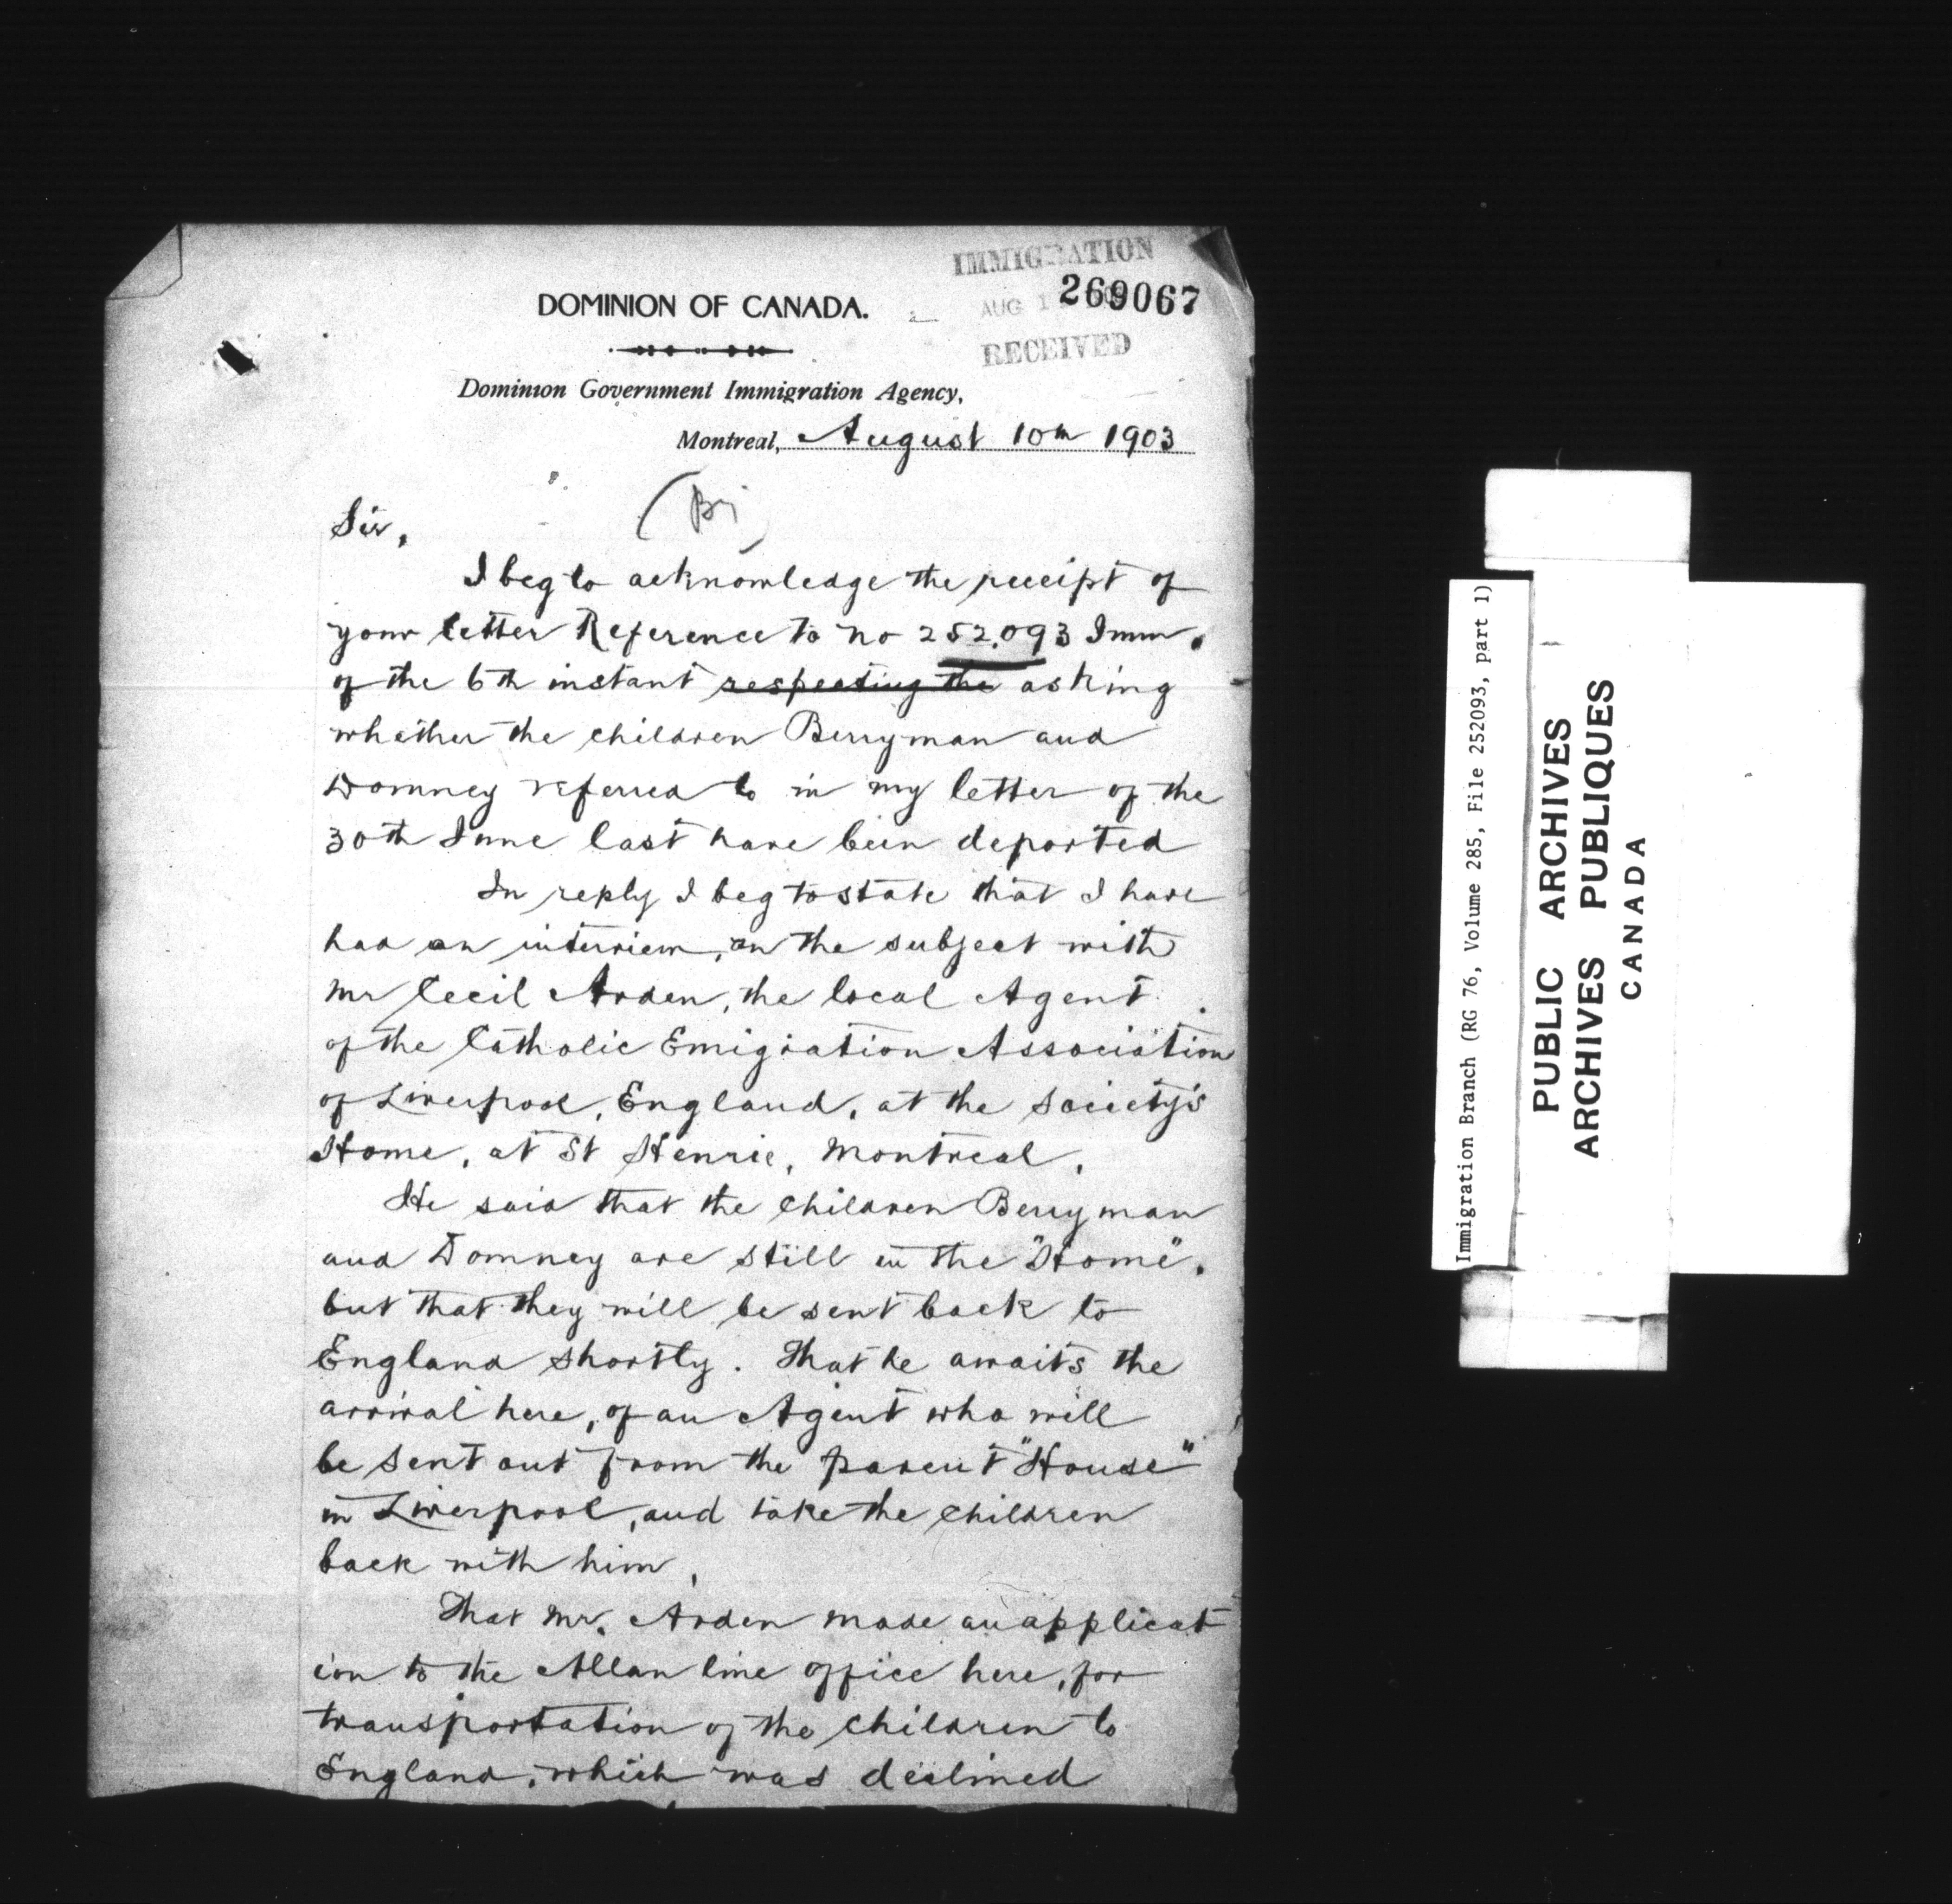 IMMIGRATION
269067
AUG 1
RECEIVED
DOMINION OF CANADA.
Dominion Government Immigration Agency,
Montreal, August 10th 1903
Sir,
I beg to acknowledge the receipt of
your letter Reference to no 252.093 Imm.
of the 6th instant respecting the asking
whether the children Berryman and
Domney referred to in my letter of the
30th June last have been deported
In reply I beg to state that I have
had an interview, on the subject with
Mr Cecil Arden, the local Agent
of the Catholic Emigration Association
of Liverpool, England, at the society's
Home, at St Henrie, Montreal.
He said that the children Berryman
and Domney are still in the "Home".
but that they will be sent back to
England shortly. That he awaits the
arrival here, of an Agent who will
be sent out from the parent "House"
in Liverpool, and take the children
back with him.
That Mr. Arden made an applicat
ion to the Allan line office here, for
transportation of the children to
England, which was declined
Immigration Branch (RG 76, Volume 285, File 252093, part 1)
PUBLIC ARCHIVES
ARCHIVES PUBLIQUES
CANADA